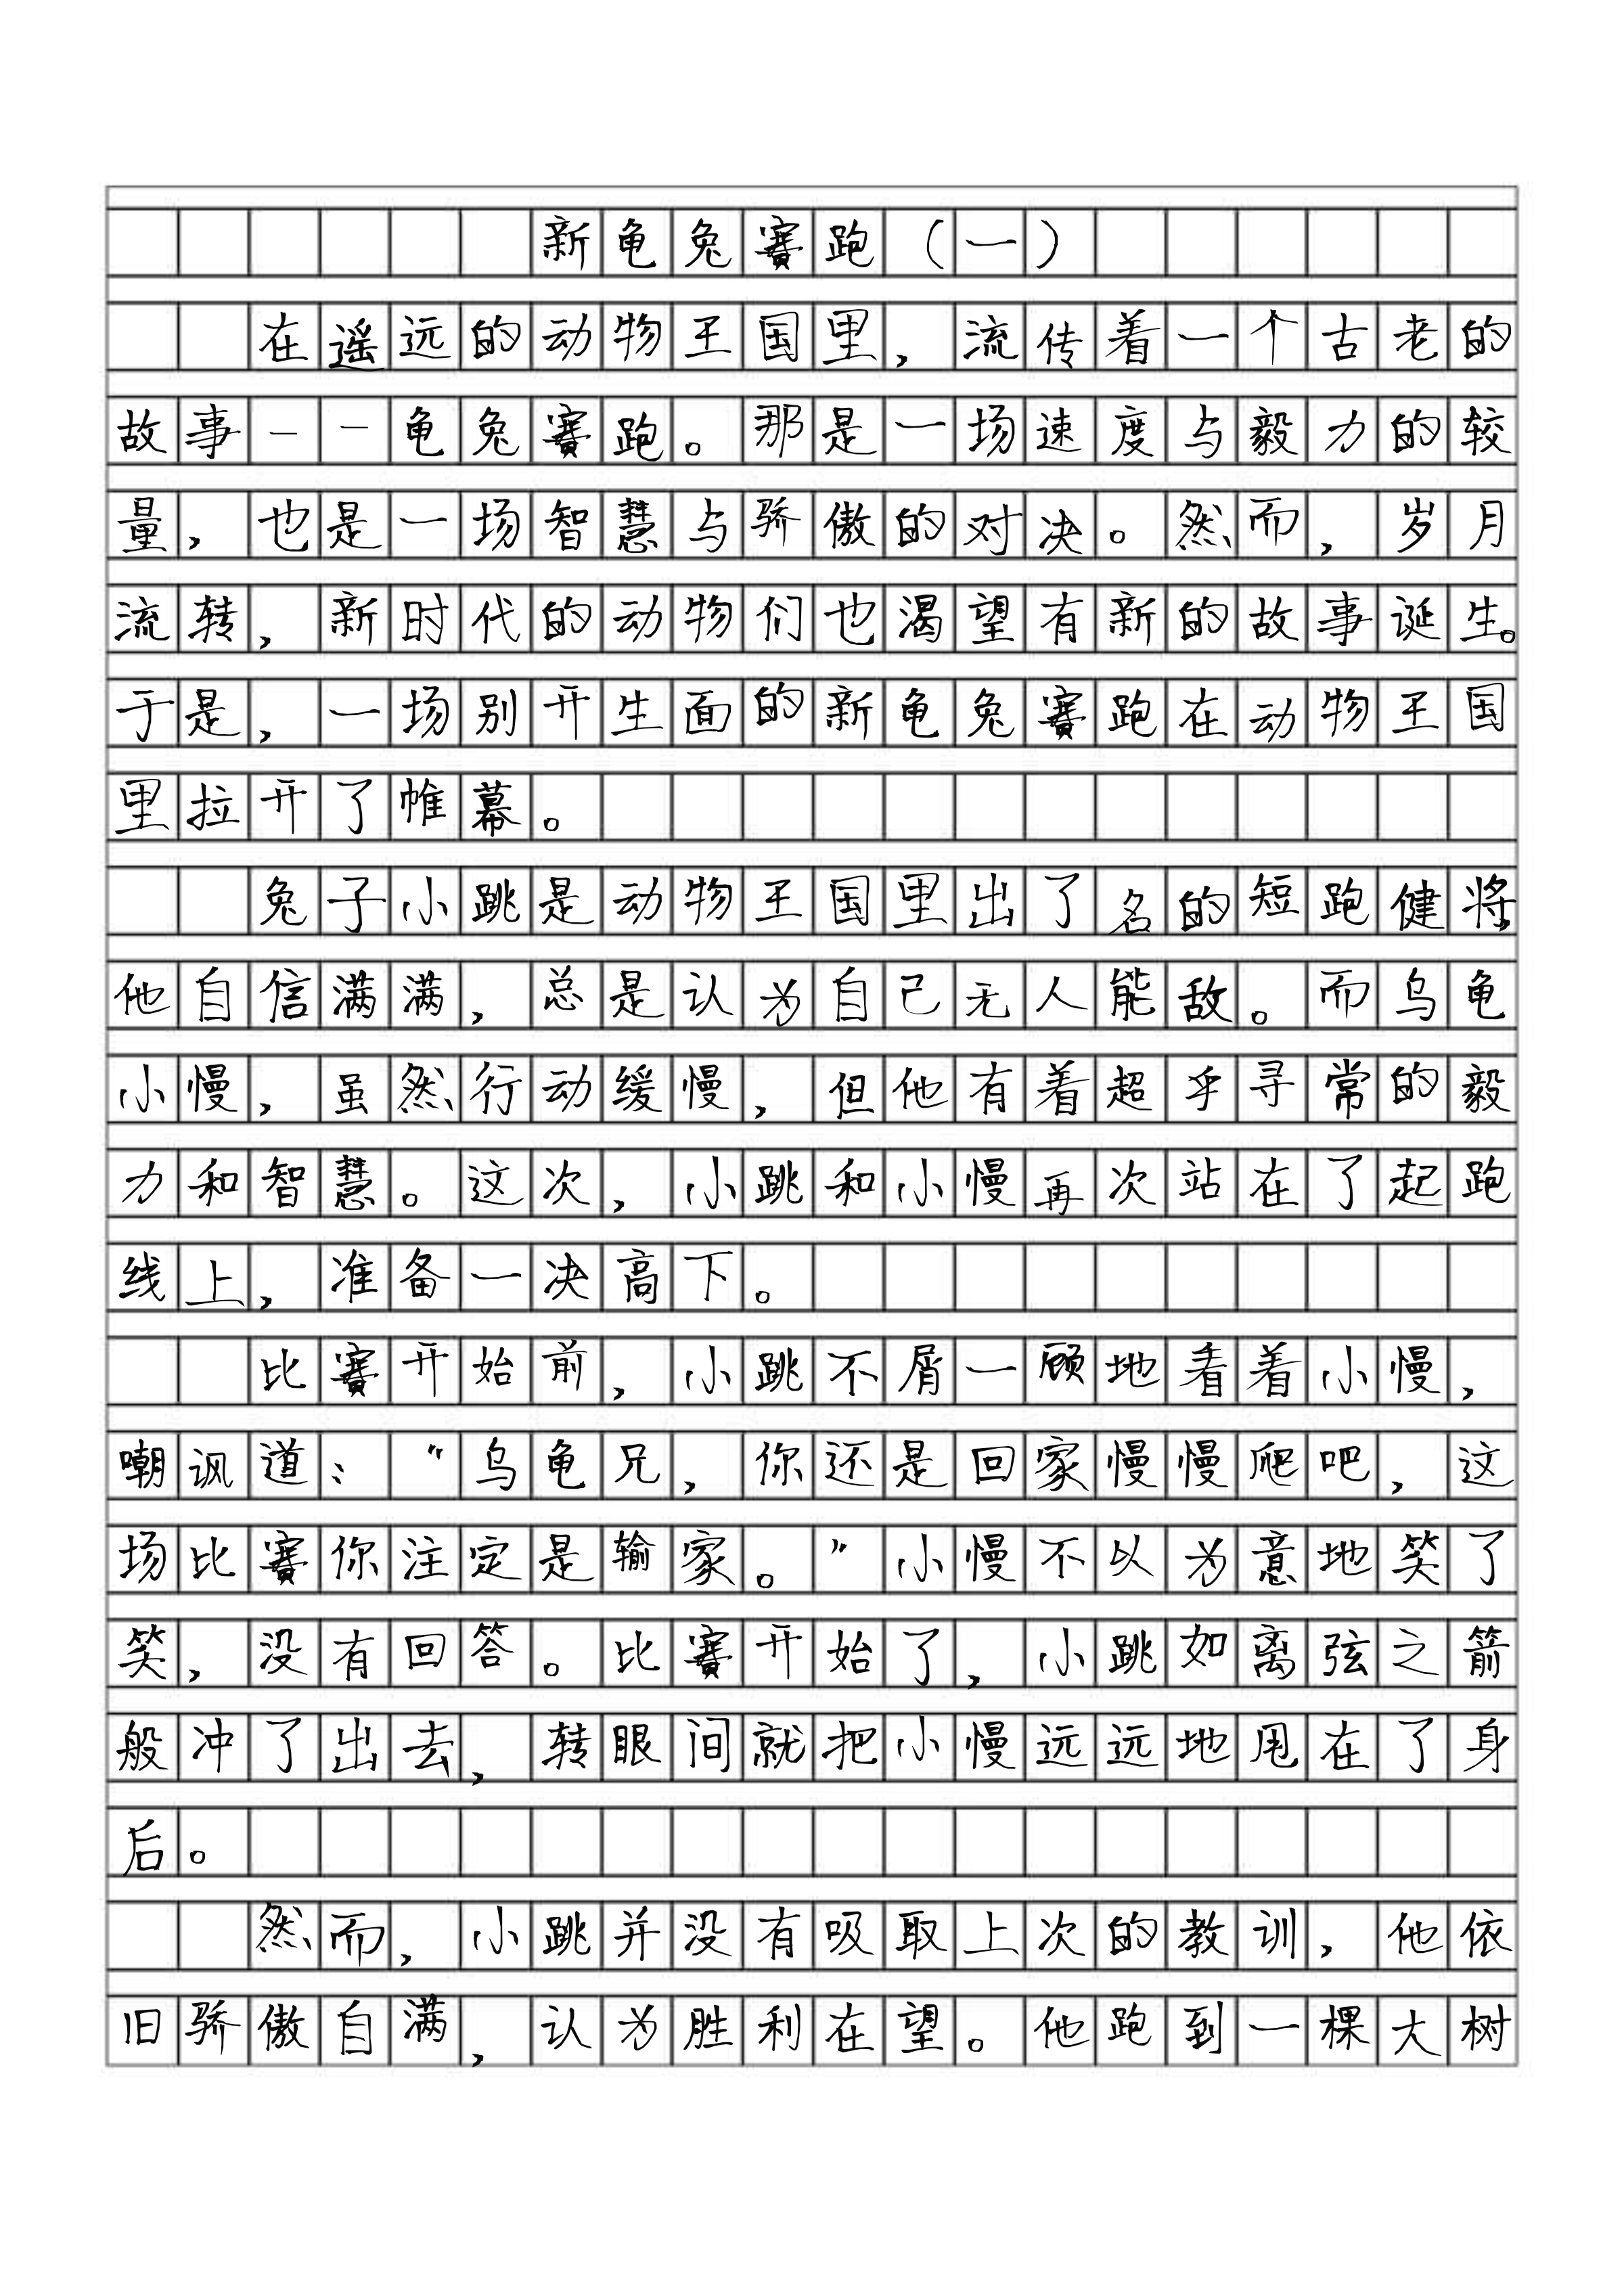 新龟兔赛跑（一）
在遥远的动物王国里，流传着一个古老的
故事——龟兔赛跑。那是一场速度与毅力的较
量，也是一场智慧与骄傲的对决。然而，岁月
流转，新时代的动物们也渴望有新的故事诞生。
于是，一场别开生面的新龟兔赛跑在动物王国
里拉开了帷幕。
兔子小跳是动物王国里出了名的短跑健将，
他自信满满，总是认为自己无人能敌。而乌龟
小慢，虽然行动缓慢，但他有着超乎寻常的毅
力和智慧。这次，小跳和小慢再次站在了起跑
线上，准备一决高下。
比赛开始前，小跳不屑一顾地看着小慢，
嘲讽道：“乌龟兄，你还是回家慢慢爬吧，这
场比赛你注定是输家。”小慢不以为意地笑了
笑，没有回答。比赛开始了，小跳如离弦之箭
般冲了出去，转眼间就把小慢远远地甩在了身
后。
然而，小跳并没有吸取上次的教训，他依
旧骄傲自满，认为胜利在望。他跑到一棵大树